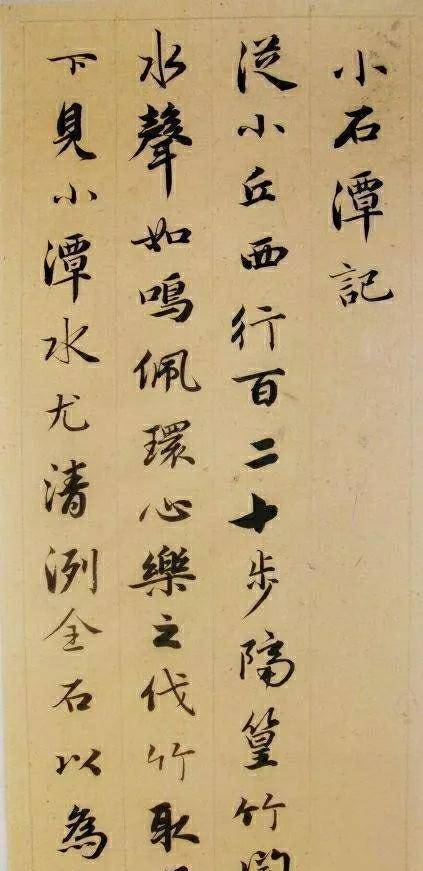 小石潭記
從小丘西行百二十步隔篁竹
水聲如鳴佩環心樂之伐竹取
下見小潭水尤清洌全石以為